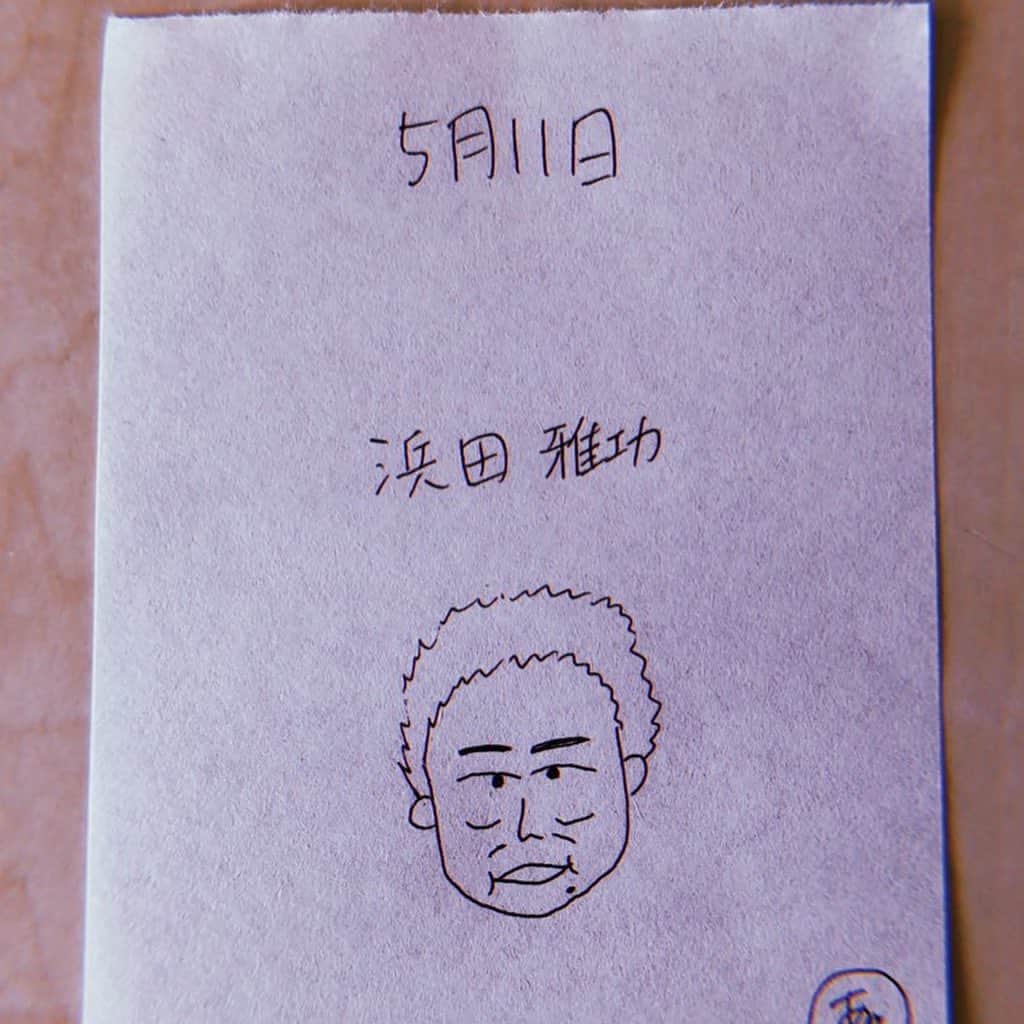 5月11日
浜田 雅功
あ